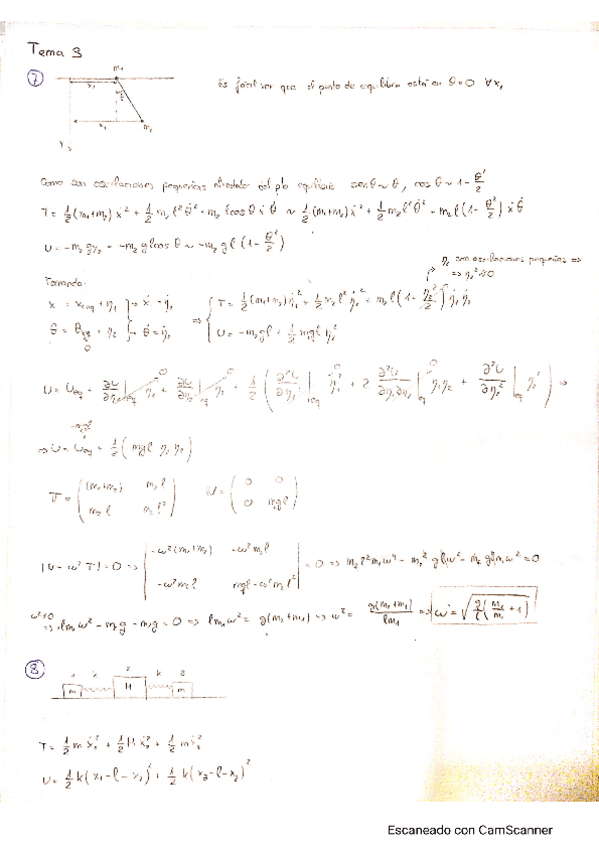 Tema 3
7
m₁
x₁
x₁ m₂
y
Es fácil ver que el punto de equilibrio está en θ=0 ∀x₁
Como son oscilaciones pequeñas alrededor del pto equilibrio senθ ~ θ, cosθ ~ 1 - θ²/2
T = 1/2 (m₁+m₂) ẋ² + 1/2 m₂ l² θ̇² + m₂ l cosθ ẋ θ̇ ~ 1/2 (m₁+m₂) ẋ² + 1/2 m₂ l² θ̇² + m₂ l (1 - θ²/2) ẋ θ̇
U = -m₂ g y₂ = -m₂ g l cosθ ~ -m₂ g l (1 - θ²/2)
η₂ son oscilaciones pequeñas ⇒
⇒ η₂² ≈ 0
Tomando:
x = x₁eq + η₁ → ẋ = η̇₁
θ = θeq + η₂ → θ̇ = η̇₂
0
⇒ T = 1/2 (m₁+m₂) η̇₁² + 1/2 m₂ l² η̇₂² + m₂ l (1 - η₂²/2) η̇₁ η̇₂
U = -m₂ g l + 1/2 m g l η₂²
U = Ueq + ∂U/∂η₁|eq η₁ + ∂U/∂η₂|eq η₂ + 1/2 ( ∂²U/∂η₁²|eq η₁² + 2 ∂²U/∂η₁∂η₂|eq η₁η₂ + ∂²U/∂η₂²|eq η₂² ) ⇒
⇒ U = Ueq + 1/2 ( m g l η₂ η₂ )
T = ( (m₁+m₂) m₂ l ; m₂ l m₂ l² ) U = ( 0 0 ; 0 m g l )
|U - ω² T| = 0 ⇒ | -ω²(m₁+m₂) -ω² m₂ l ; -ω² m₂ l m g l - ω² m₂ l² | = 0 ⇒ m₂ l² m₁ ω⁴ - m₂² g l ω² - m₂ g l m₁ ω² = 0
ω²≠0
⇒ l m₁ ω² - m₂ g - m₁ g = 0 ⇒ l m₁ ω² = g(m₂+m₁) ⇒ ω² = g(m₂+m₁)/l m₁ ⇒ ω = √( g/l ( m₂/m₁ + 1 ) )
8
1 k 2 k 3
m M m
T = 1/2 m ẋ₁² + 1/2 M ẋ₂² + 1/2 m ẋ₃²
U = 1/2 k ( x₂ - l - x₁ )² + 1/2 k ( x₃ - l - x₂ )²
Escaneado con CamScanner